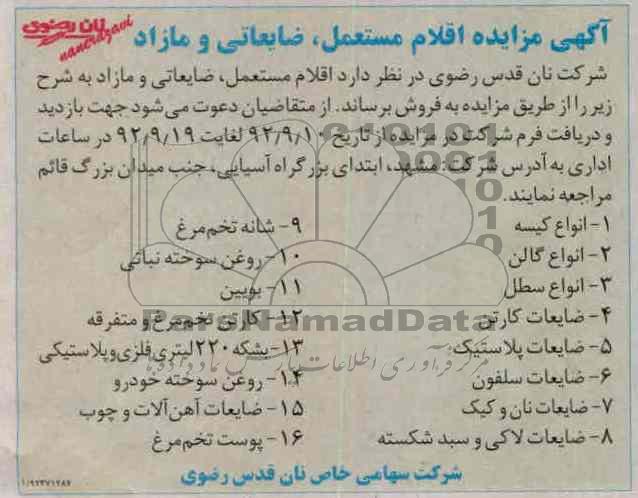 نان رضوی
nanerazavi
آگهی مزایده اقلام مستعمل، ضایعاتی و مازاد
شرکت نان قدس رضوی در نظر دارد اقلام مستعمل، ضایعاتی و مازاد به شرح
زیر را از طریق مزایده به فروش برساند. از متقاضیان دعوت می‌شود جهت بازدید
و دریافت فرم شرکت در مزایده از تاریخ ۹۲/۹/۱۰ لغایت ۹۲/۹/۱۹ در ساعات
اداری به آدرس شرکت: مشهد، ابتدای بزرگراه آسیایی، جنب میدان بزرگ قائم
مراجعه نمایند.
۱- انواع کیسه
۲- انواع گالن
۳- انواع سطل
۴- ضایعات کارتن
۵- ضایعات پلاستیک
۶- ضایعات سلفون
۷- ضایعات نان و کیک
۸- ضایعات لاکی و سبد شکسته
۹- شانه تخم‌مرغ
۱۰- روغن سوخته نباتی
۱۱- بوبین
۱۲- کارتن تخم‌مرغ و متفرقه
۱۳- بشکه ۲۲۰ لیتری فلزی و پلاستیکی
۱۴- روغن سوخته خودرو
۱۵- ضایعات آهن‌آلات و چوب
۱۶- پوست تخم‌مرغ
ParsNamadData
مرکز فرآوری اطلاعات پارس نماد داده‌ها
شرکت سهامی خاص نان قدس رضوی